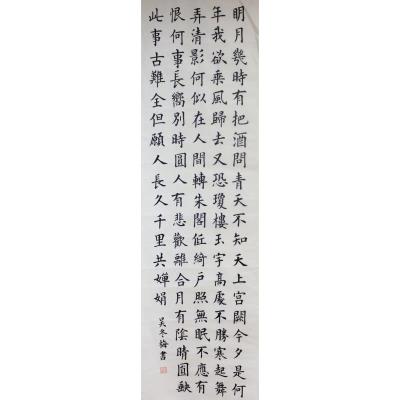 明月幾時有把酒問青天不知天上宮闕今夕是何
年我欲乘風歸去又恐瓊樓玉宇高處不勝寒起舞
弄清影何似在人間轉朱閣低綺戶照無眠不應有
恨何事長嚮別時圓人有悲歡離合月有陰晴圓缺
此事古難全但願人長久千里共嬋娟
吳冬梅書